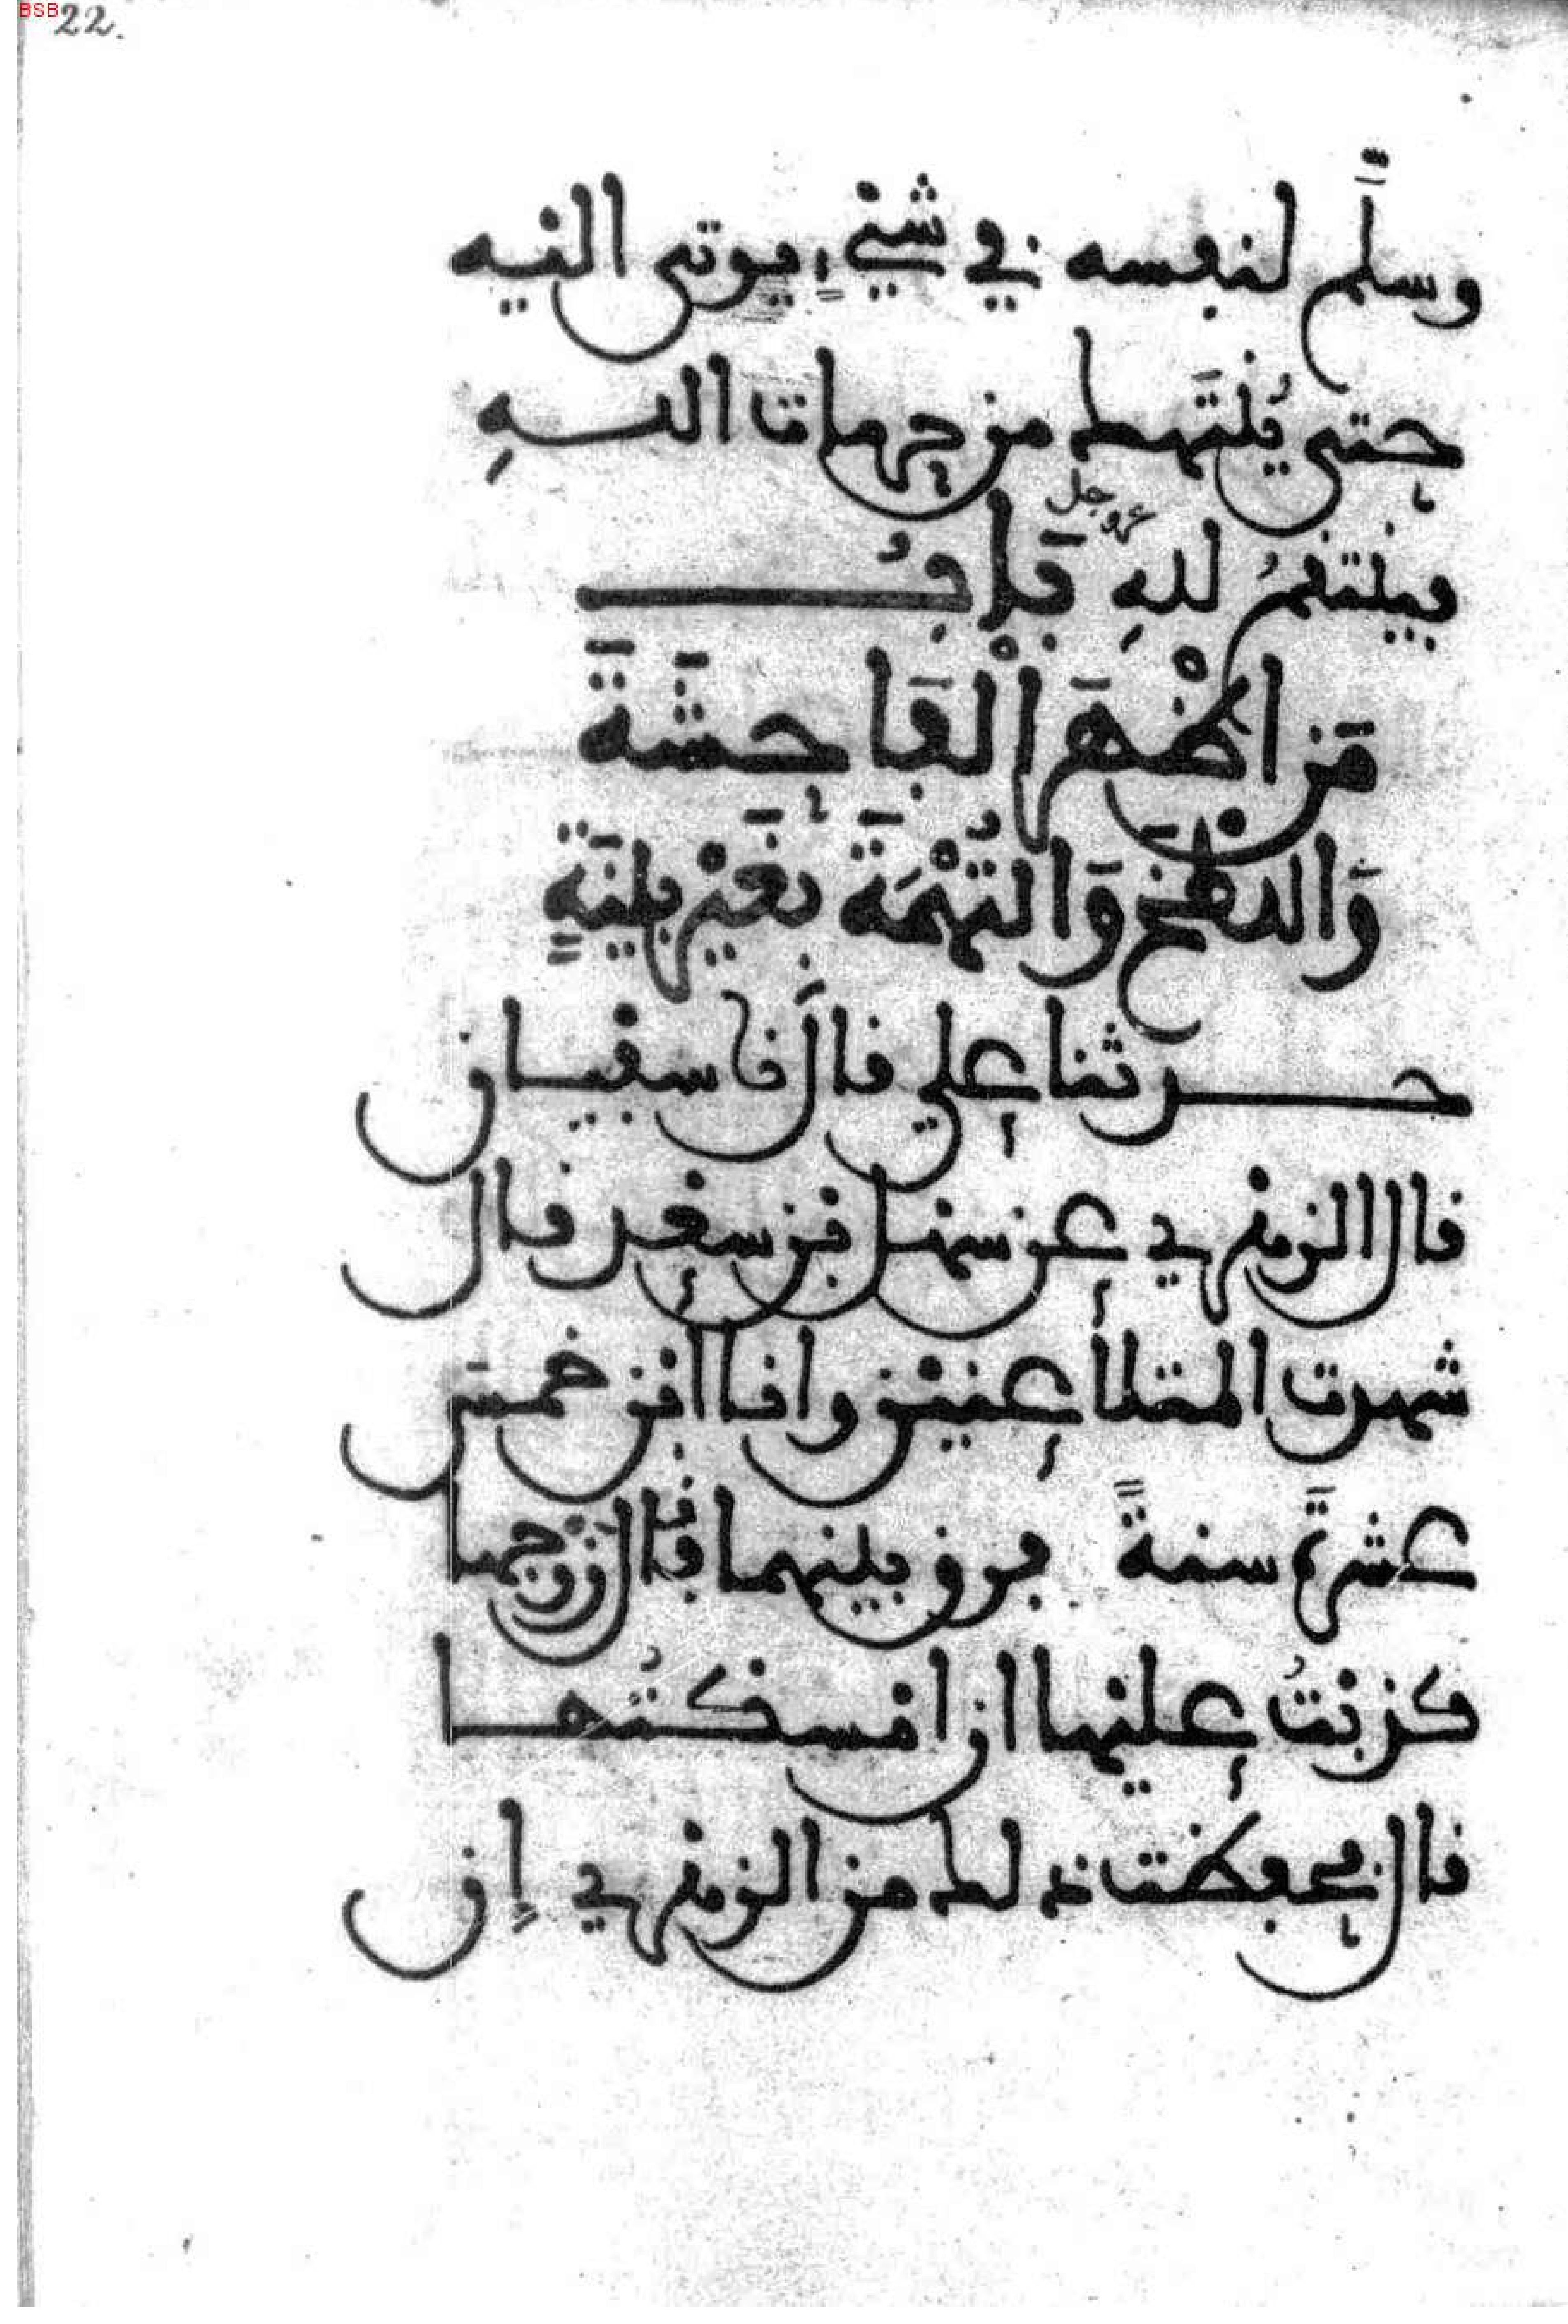 BSB 22.
وسلَّم لنفسه في شيء يوتى اليه
حتى يُنتَهك من حرمات اللهِ
عز وجل
فينتقمُ للهِ بَابُ
مَن اظْهَرَ الْفَاحِشَةَ
وَاللطخ وَالتُهْمَةَ بغَيْر بيِّنَةٍ
حدثنا علي قالَ نا سفيان
قال الزهري عن سهل بن سعد قال
شهدت المتلاعنين وانا ابن خمسَ
عشرةَ سنةً فرق بينهما فقال زوجها
كذبتُ عليها ان امسكتُها
قال فحفظت ذلك من الزهري إن